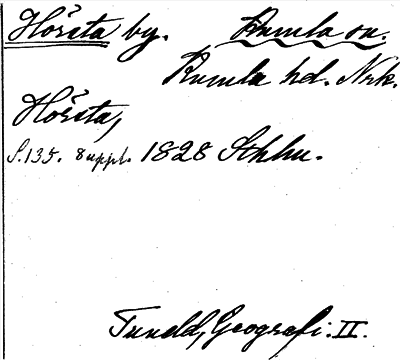 Hörsta by. Kumla sn.
Kumla hd. Nrk.
Hörsta,
S. 135. 8 uppl. 1828 Sthlm.
Tuneld, Geografi. II.